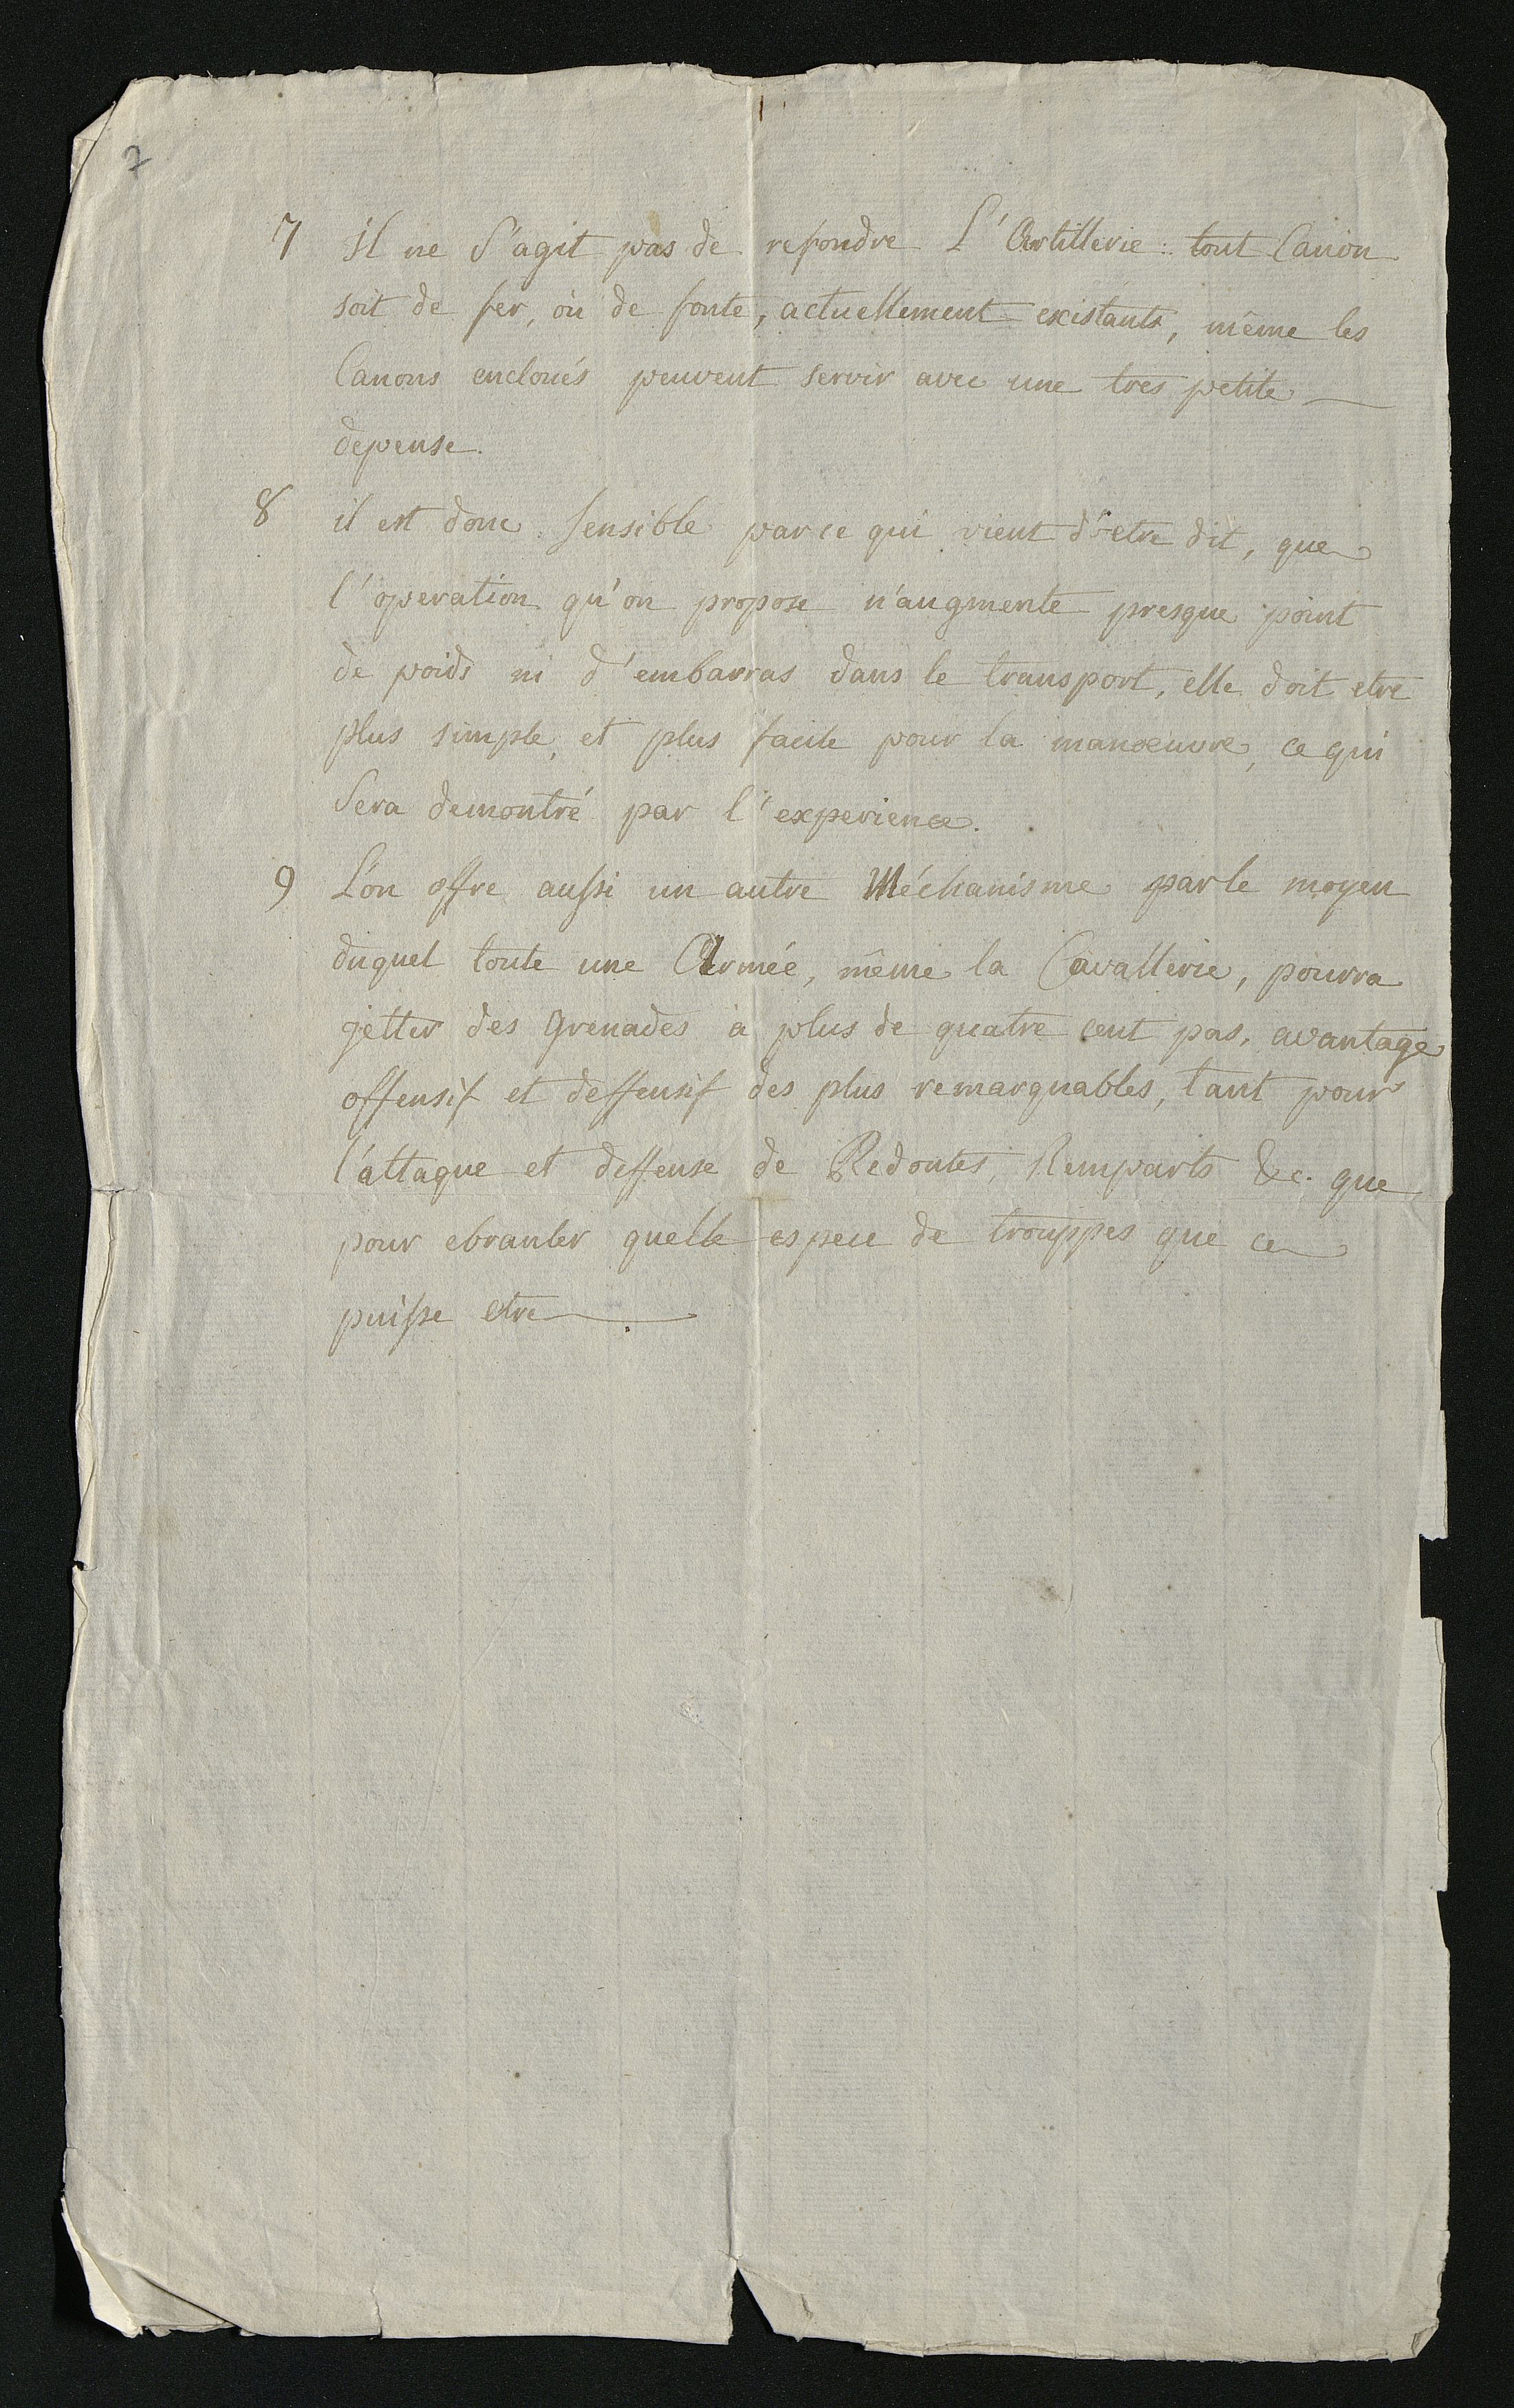 7
7 Il ne s'agit pas de refondre L'Artillerie: tout Canon
soit de fer, où de fonte, actuellement existants, même les
Canons encloués peuvent servir avec une tres petite
depense.
8 il est donc sensible par ce qui vient d'etre dit, que
l'operation qu'on propose n'augmente presque point
de poids ni d'embarras dans le transport, elle doit etre
plus simple, et plus facile pour la manoeuvre, ce qui
sera demontré par l'experience.
9 L'on offre aussi un autre Méchanisme par le moyen
duquel toute une Armée, même la Cavallerie, pourra
jetter des Grenades à plus de quatre cent pas, avantage
offensif et deffensif des plus remarquables, tant pour
l'attaque et deffense de Redoutes, Remparts &c. que
pour ebranler quelle espece de trouppes que ce
puisse etre.